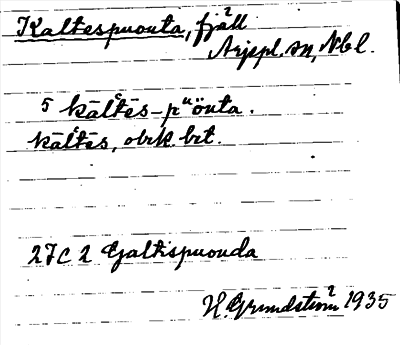 Kaltespuouta, fjäll
Arjpl. sn, Nbl.
5 kāl̄tēs-pᵘönta.
kāl̄tēs, obrk. bet.
27C 2 Galtispuouda
H. Grundström 1935